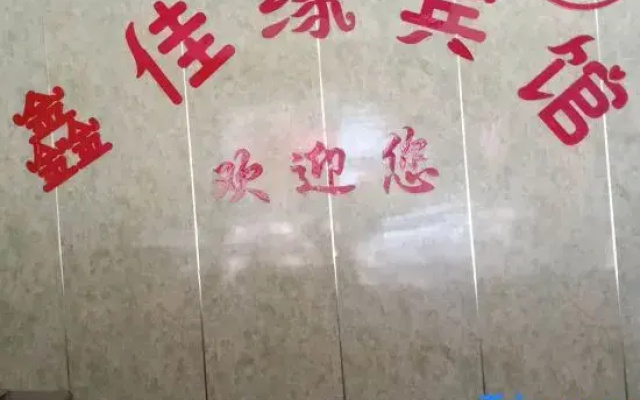 鑫佳缘宾馆
欢迎您